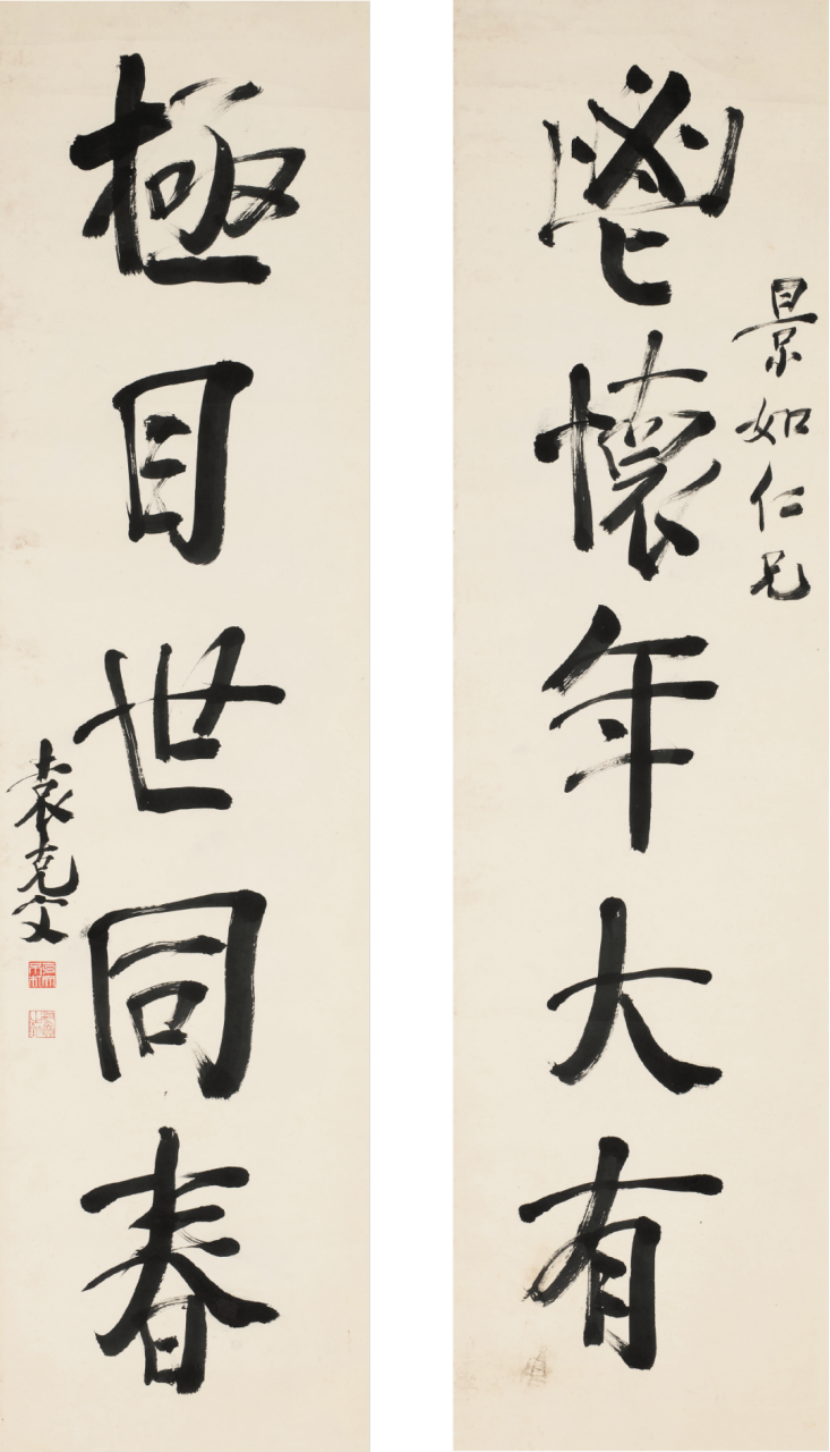 景如仁兄
鬯懷年大有
極目世同春
袁克文